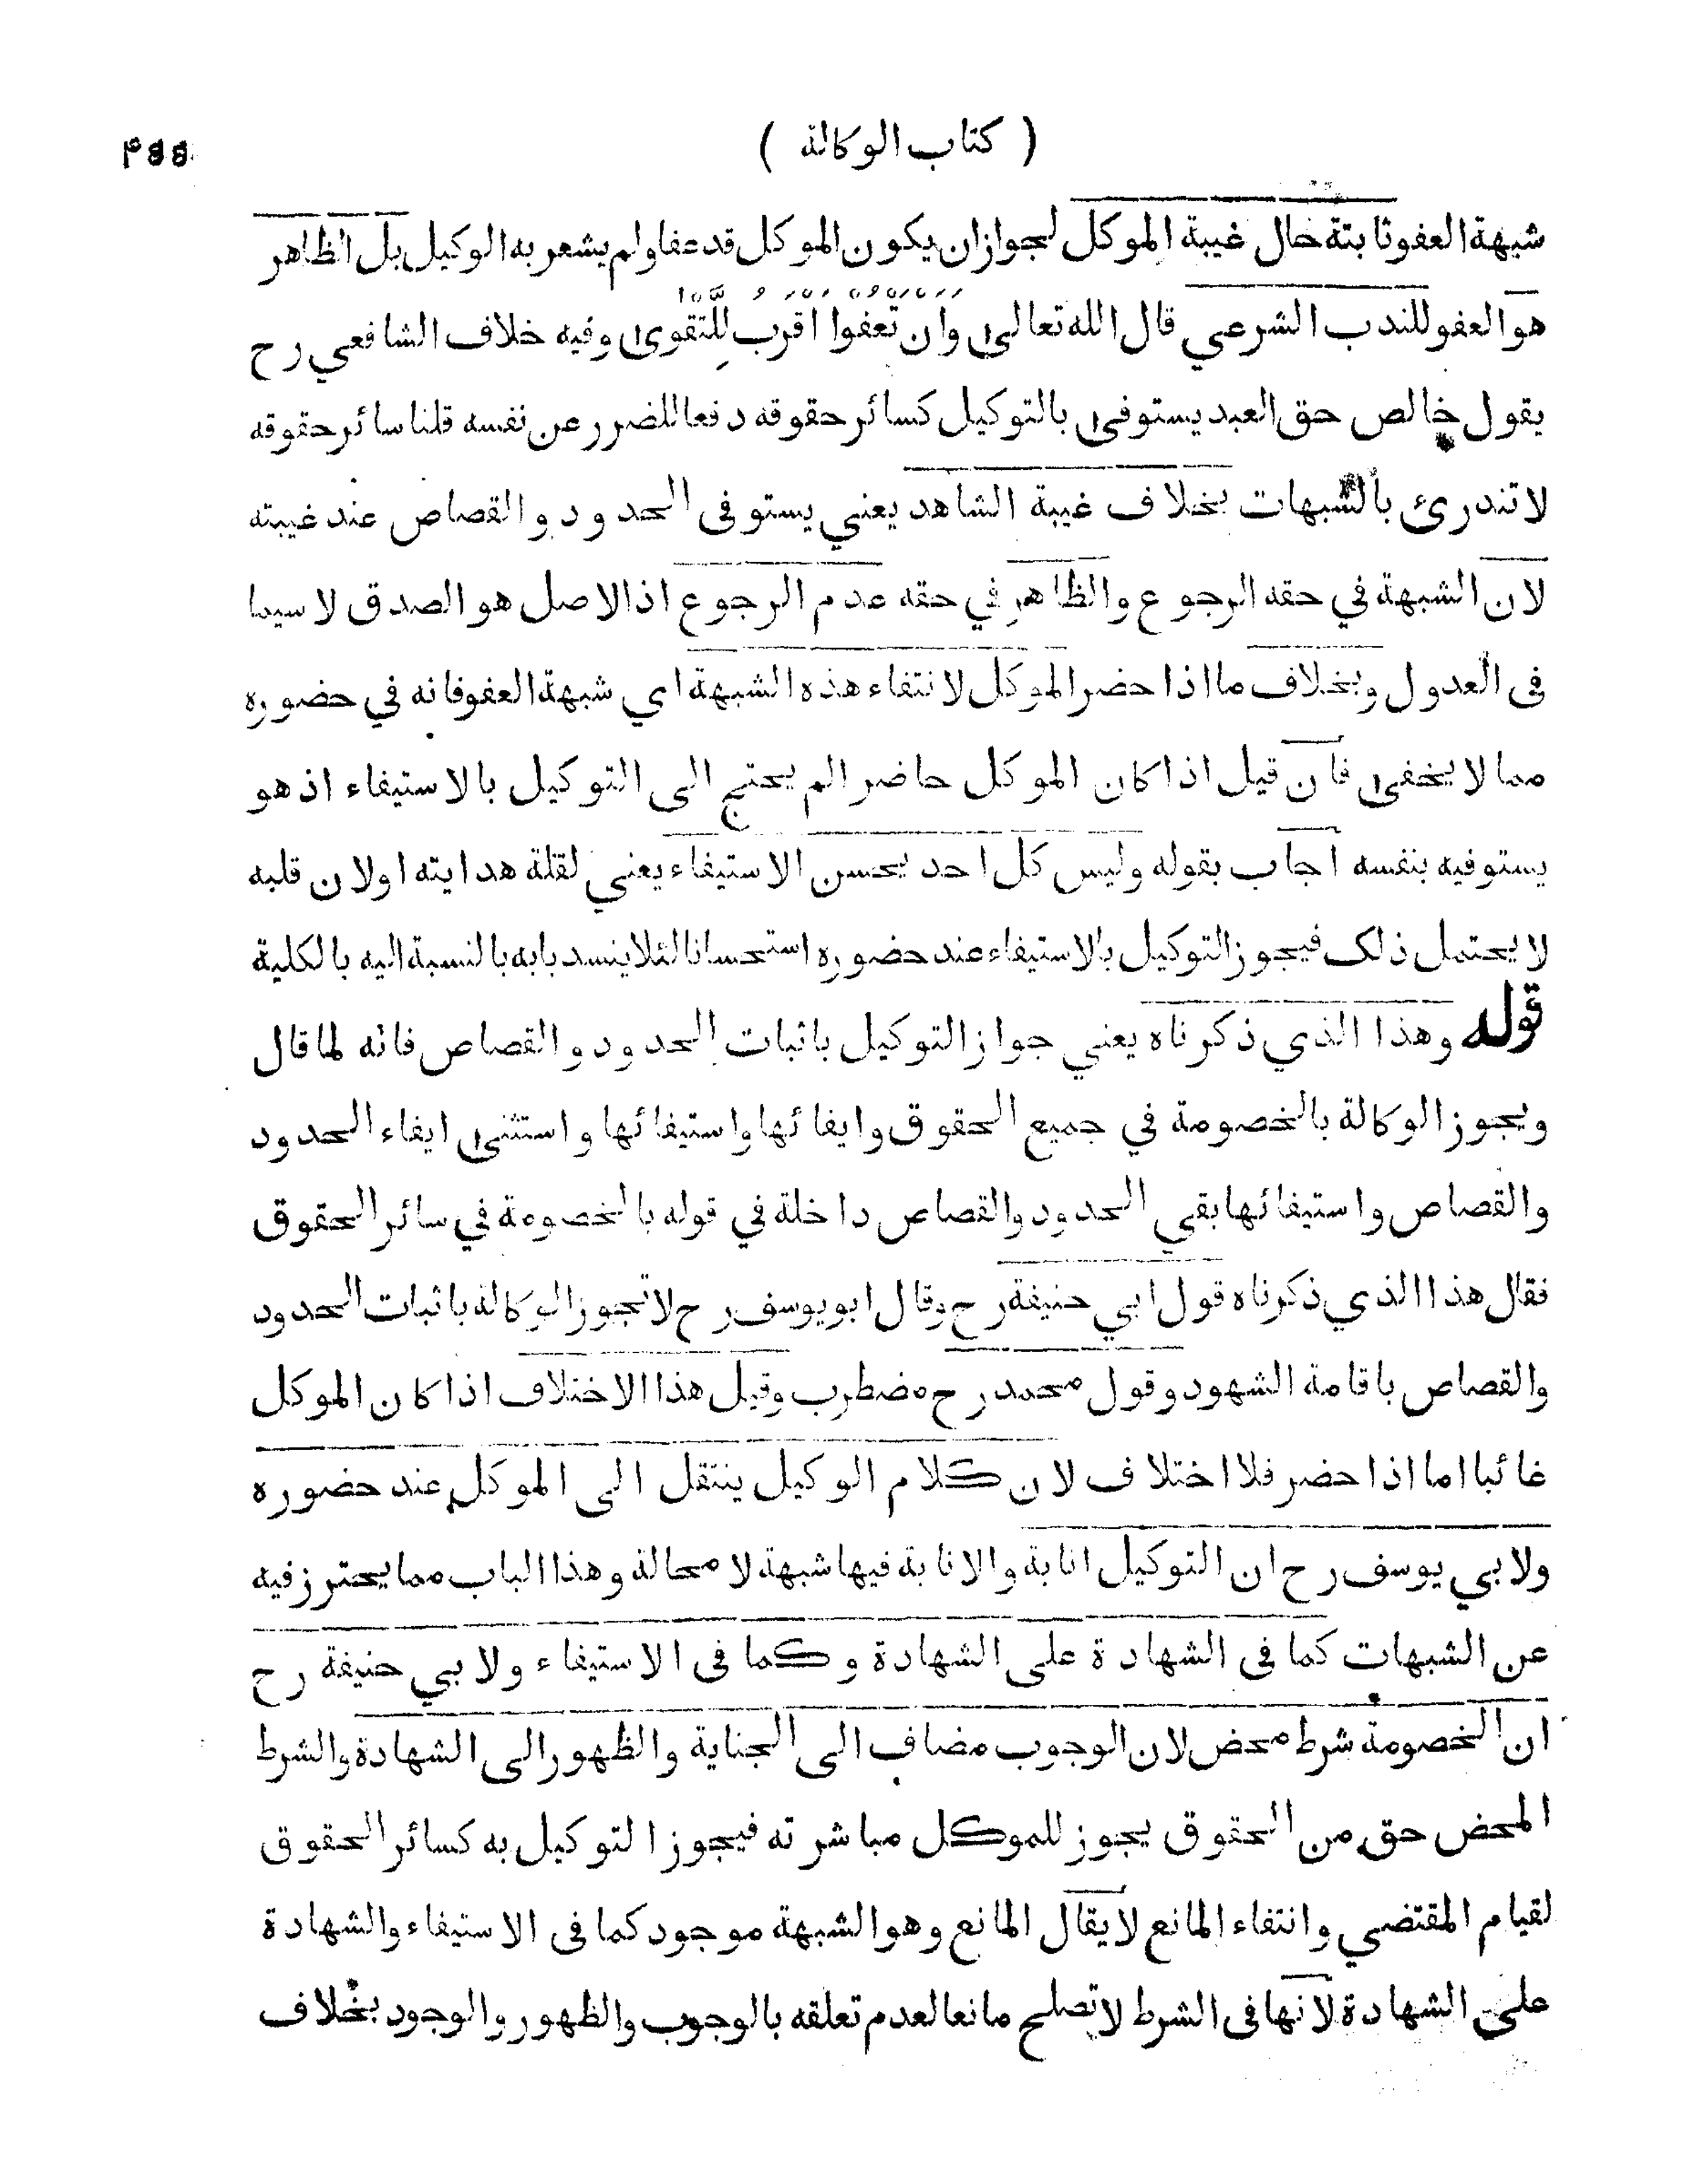 ( كتاب الوكالة )
شبهة العفو ثابتة حال غيبة الموكل لجواز ان يكون الموكل قد عفا ولم يشعر به الوكيل بل الظاهر
هو العفو للندب الشرعي قال الله تعالى وَاَن تَعفُوا اَقرَبُ لِلتَّقوى وفيه خلاف الشافعي رح
يقول خالص حق العبد يستوفى بالتوكيل كسائر حقوقه دفعا للضرر عن نفسه قلنا سائر حقوقه
لا تندرئ بالشبهات بخلاف غيبة الشاهد يعني يستوفى الحدود والقصاص عند غيبته
لان الشبهة في حقه الرجوع والظاهر في حقه عدم الرجوع اذ الاصل هو الصدق لا سيما
فى العدول وبخلاف ما اذا حضر الموكل لانتفاء هذه الشبهة اي شبهة العفو فانه في حضوره
مما لا يخفى فان قيل اذا كان الموكل حاضرا لم يحتج الى التوكيل بالاستيفاء اذ هو
يستوفيه بنفسه اجاب بقوله وليس كل احد يحسن الاستيفاء يعني لقلة هدايته اولان قلبه
لا يحتمل ذلك فيجوز التوكيل بالاستيفاء عند حضوره استحسانا لئلا ينسد بابه بالنسبة اليه بالكلية
قوله وهذا الذي ذكرناه يعني جواز التوكيل باثبات الحدود والقصاص فانه لما قال
ويجوز الوكالة بالخصومة في جميع الحقوق وايفائها واستيفائها واستثنى ايفاء الحدود
والقصاص واستيفائها بقي الحدود والقصاص داخلة في قوله بالخصومة في سائر الحقوق
فقال هذا الذي ذكرناه قول ابي حنيفة رح وقال ابو يوسف رح لا تجوز الوكالة باثبات الحدود
والقصاص باقامة الشهود وقول محمد رح مضطرب وقيل هذا الاختلاف اذا كان الموكل
غائبا اما اذا حضر فلا اختلاف لان كلام الوكيل ينتقل الى الموكل عند حضوره
ولابي يوسف رح ان التوكيل انابة والانابة فيها شبهة لا محالة وهذا الباب مما يحترز فيه
عن الشبهات كما فى الشهادة على الشهادة وكما فى الاستيفاء ولابي حنيفة رح
ان الخصومة شرط محض لان الوجوب مضاف الى الجناية والظهور الى الشهادة والشرط
المحض حق من الحقوق يجوز للموكل مباشرته فيجوز التوكيل به كسائر الحقوق
لقيام المقتضي وانتفاء المانع لا يقال المانع وهو الشبهة موجود كما فى الاستيفاء والشهادة
على الشهادة لانها فى الشرط لا تصلح مانعا لعدم تعلقه بالوجوب والظهور والوجود بخلاف